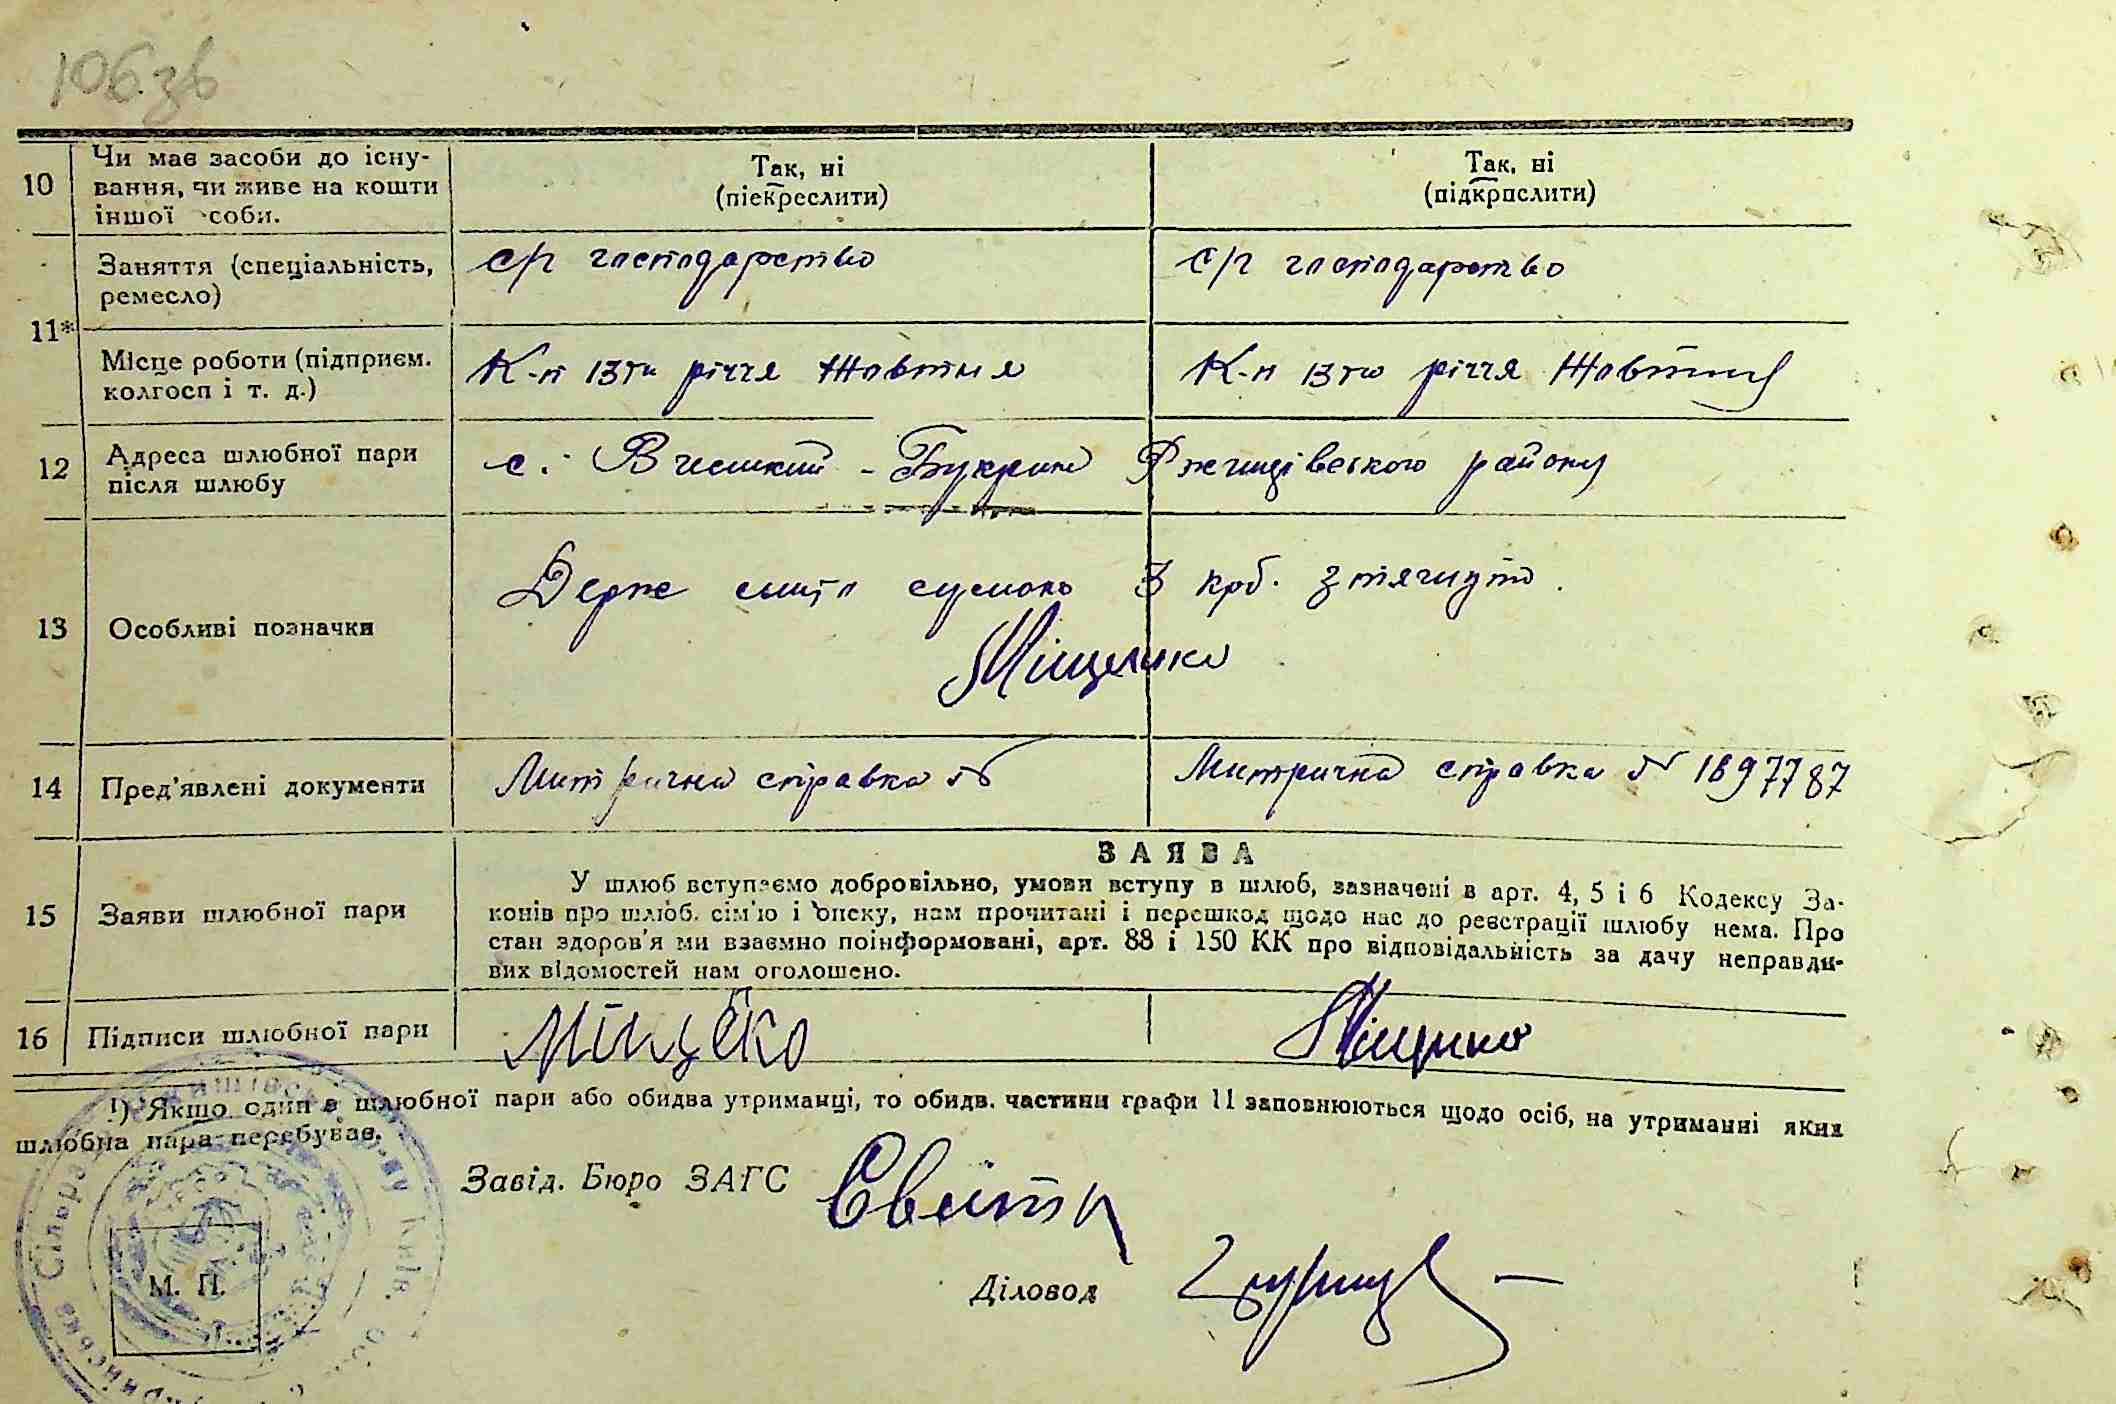 106.зв
10 Чи має засоби до існу-
вання, чи живе на кошти
іншої соби.
Так, ні
(піекреслити)
Так, ні
(підкрпслити)
11* Заняття (спеціальність,
ремесло)
с/г господарство
с/г господарство
Місце роботи (підприєм.
колгосп і т. д.)
К-п 13ти річчя Жовтня
К-п 13ти річчя Жовтня
12 Адреса шлюбної пари
після шлюбу
с. Великий-Букрин Ржищівського району
13 Особливі позначки
Держ мито сумою 3 крб. зтягнуто.
Міщенко
14 Пред'явлені документи
Митрична справка №
Митрична справка № 1697787
15 Заяви шлюбної пари
ЗАЯВА
У шлюб вступаємо добровільно, умови вступу в шлюб, зазначені в арт. 4, 5 і 6 Кодексу За-
конів про шлюб. сім'ю і опіку, нам прочитані і перешкод щодо нас до реєстрації шлюбу нема. Про
стан здоров'я ми взаємно поінформовані, арт. 88 і 150 КК про відповідальність за дачу неправди-
вих відомостей нам оголошено.
16 Підписи шлюбної пари
Міщенко
Міщенко
1) Якщо один з шлюбної пари або обидва утриманці, то обидв. частини графи 11 заповнюються щодо осіб, на утриманні яких
шлюбна пара перебуває.
Завід. Бюро ЗАГС
Діловод
М. П.
Сільра
Київ.